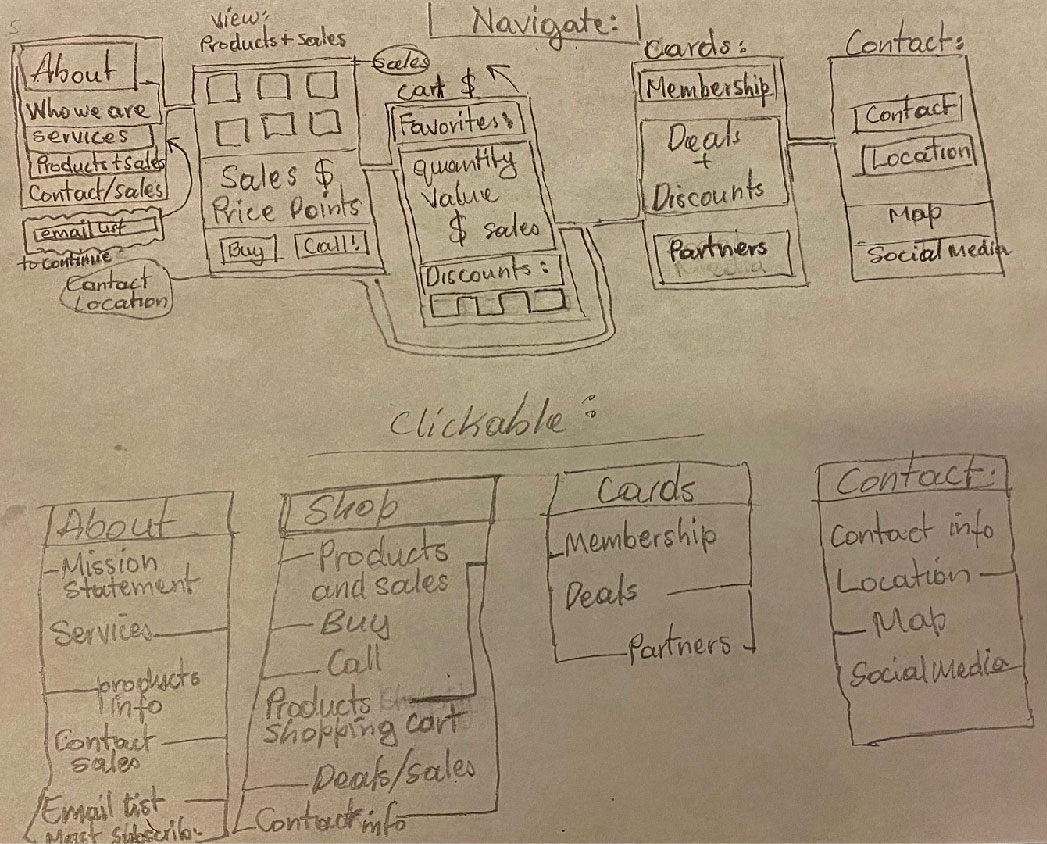 Navigate:
About
Who we are
services
Products + sales
Contact/sales
email list
to continue
Contact
Location
View:
Products + sales
Sales $
Price Points
Buy
Call!
Sales
Cart $
Favorites:
quantity
Value
$ sales
Discounts:
Cards:
Membership
Deals
+
Discounts
Partners
Contact:
Contact
Location
Map
Social Media
Clickable:
About
Mission
Statement
Services
products
info
Contact
sales
Email List
Must Subscribe
Shop
Products
and sales
Buy
Call
Products
shopping cart
Deals/sales
Contact info
Cards
Membership
Deals
Partners
Contact:
Contact info
Location
Map
Social Media